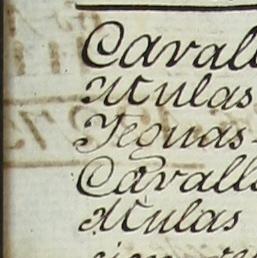 Cavall
Mulas
Yeguas
Cavall
Mulas